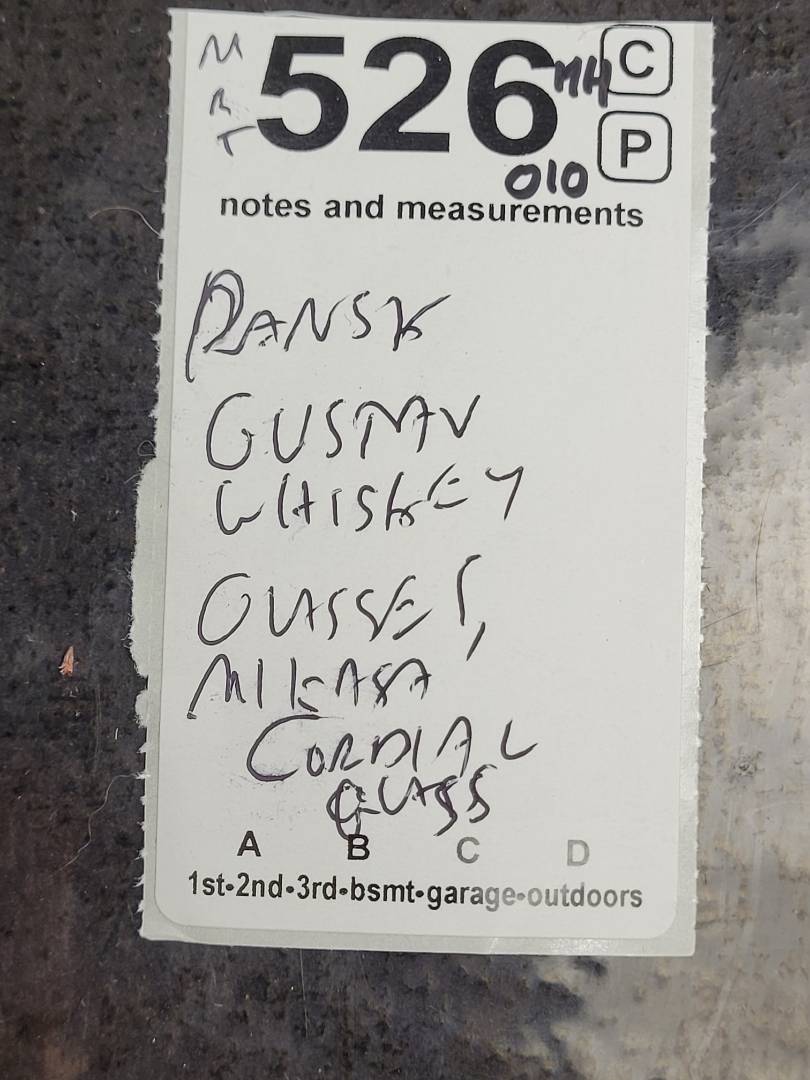 M
R
T
526 MH C
P
010
notes and measurements
DANSK
GUSTAV
WHISKEY
GLASSES,
MIKASA
CORDIAL
GLASS
A B C D
1st•2nd•3rd•bsmt•garage•outdoors